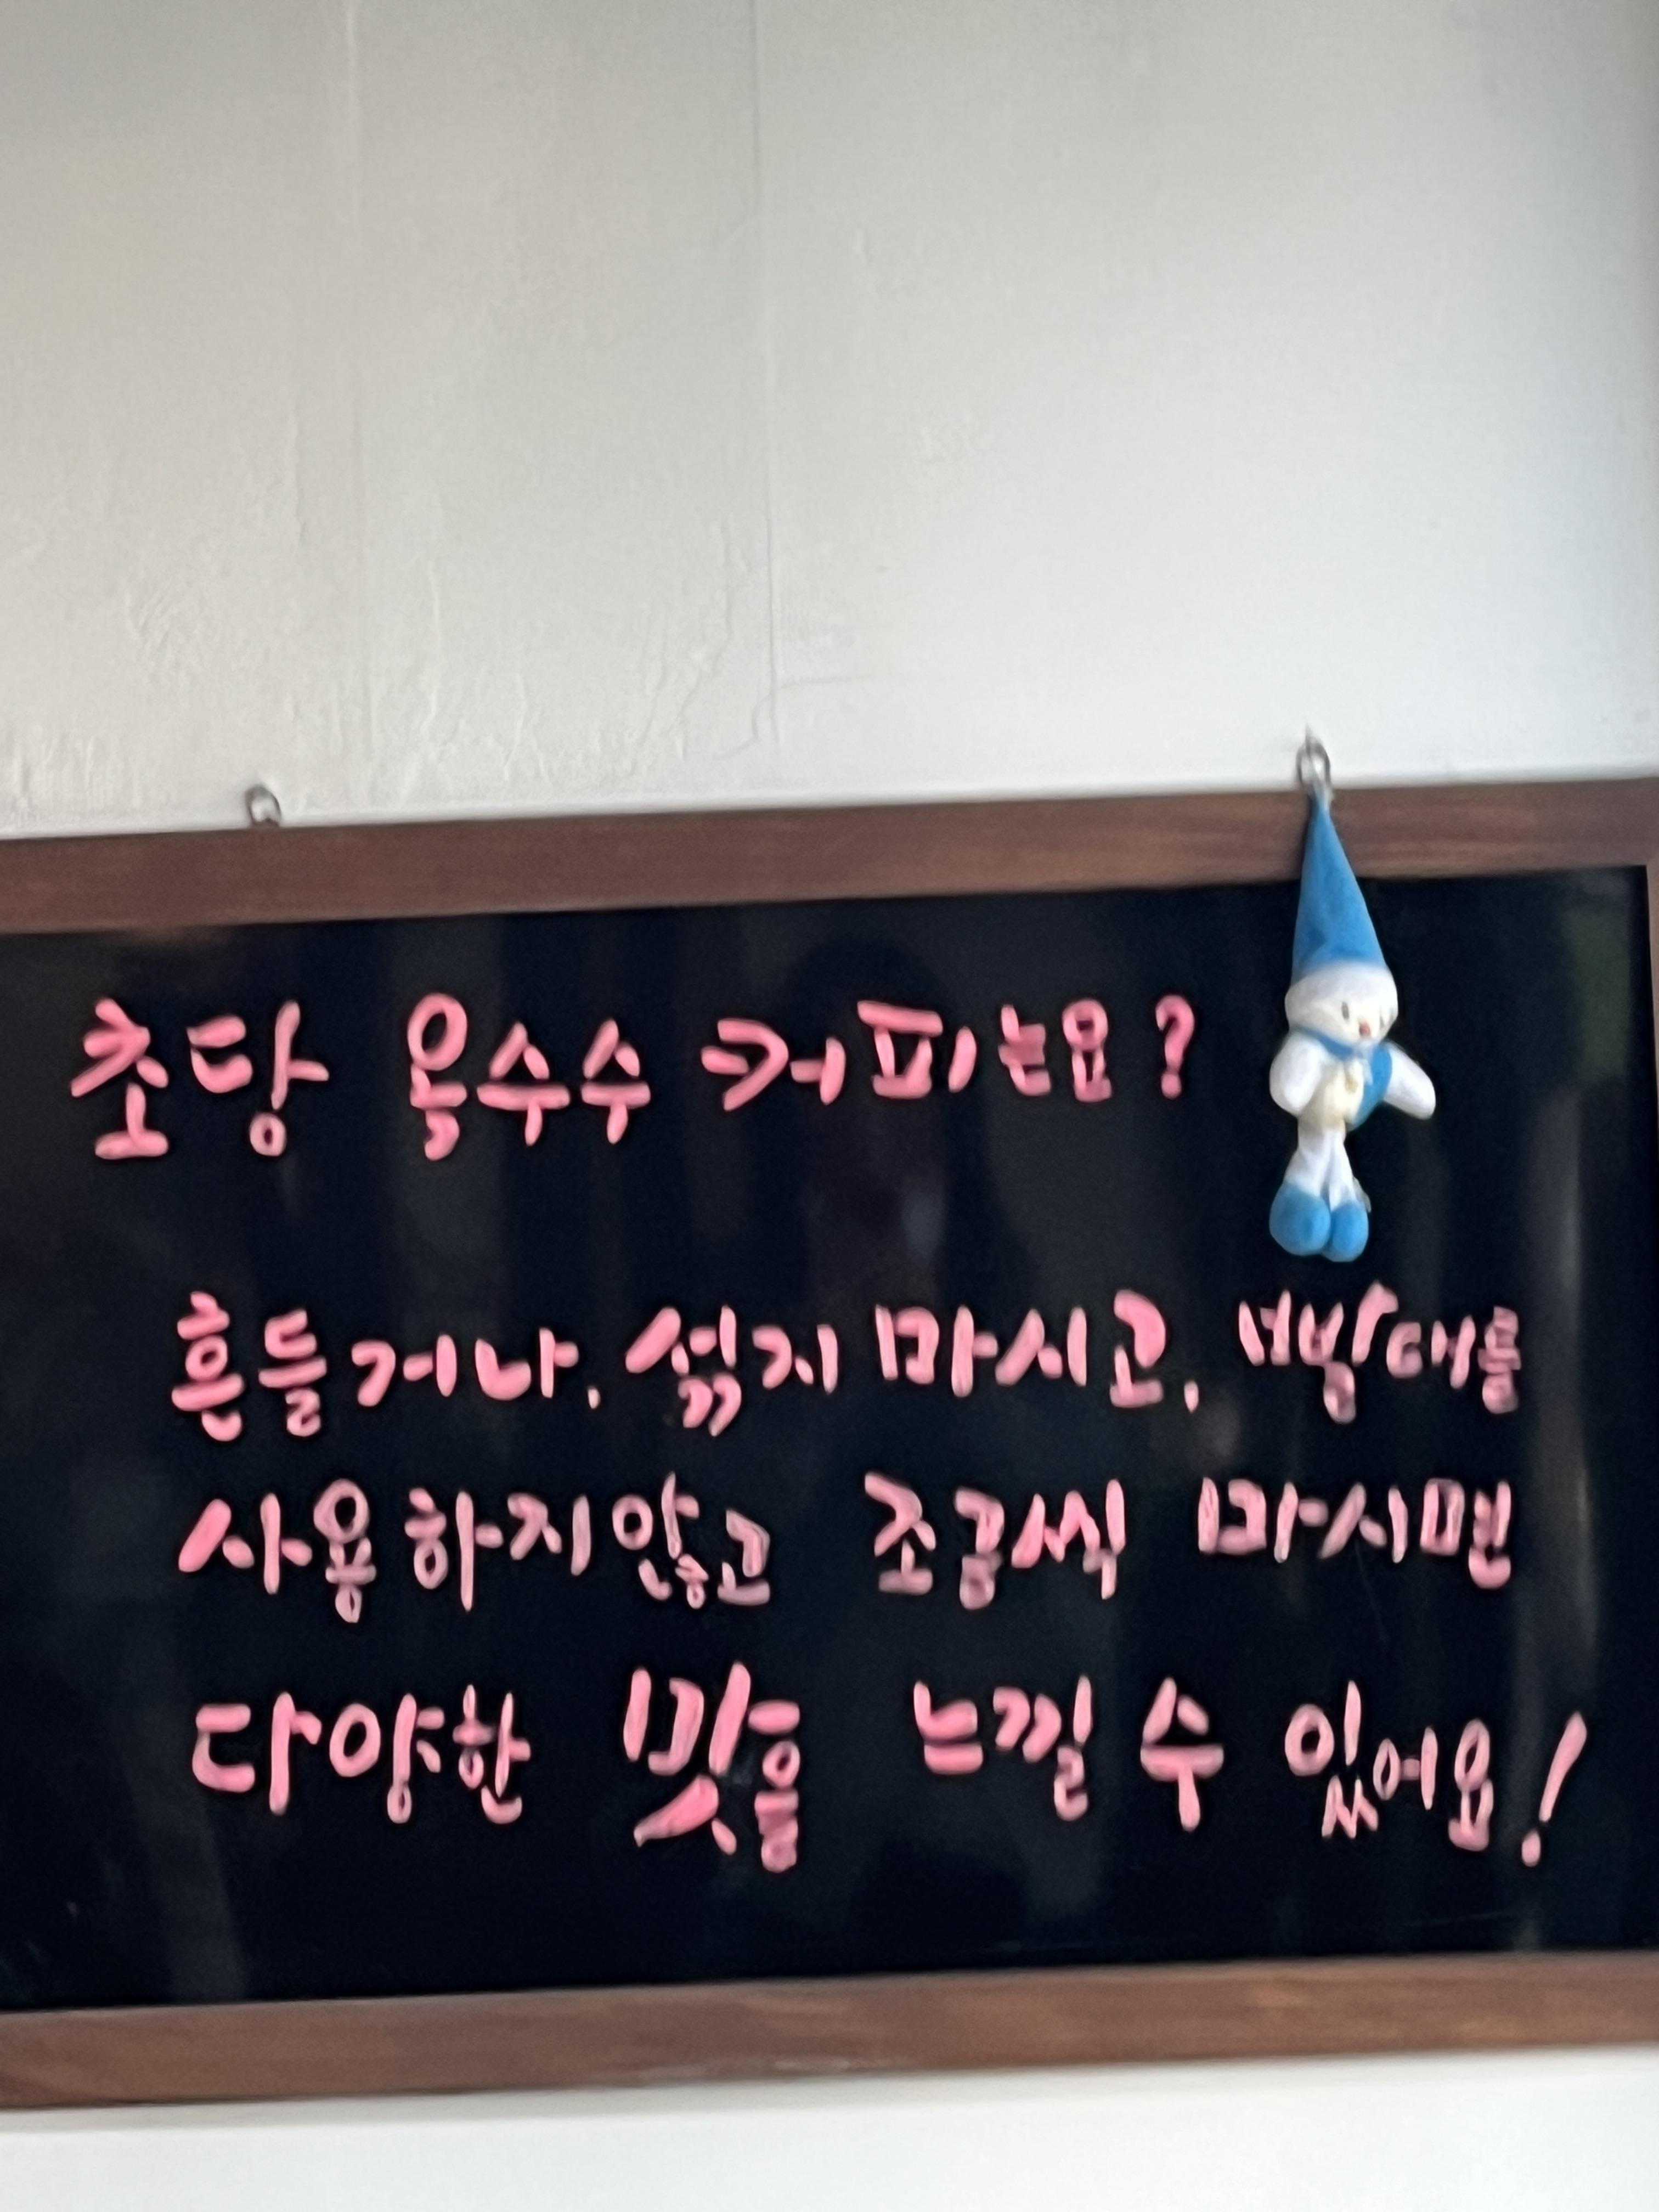 초당 옥수수 커피는요?
흔들거나, 섞지 마시고, 빨대를
사용하지않고 조금씩 마시면
다양한 맛을 느낄 수 있어요!